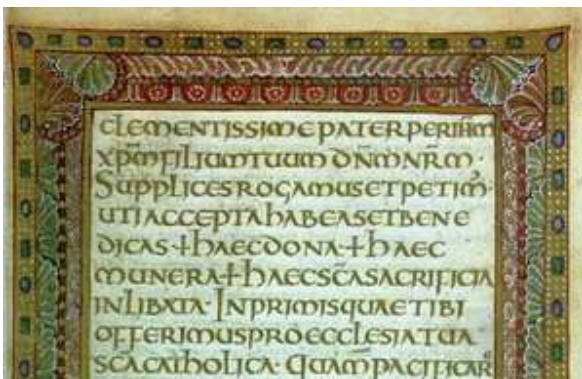 CLEMENTISSIME PATER PER IHM
XPM FILIUM TUUM DNM NRM ·
SUPPLICES ROGAMUS ET PETIM ·
UTI ACCEPTA HABEAS ET BENE
DICAS + HAEC DONA + HAEC
MUNERA + HAEC SCA SACRIFICIA
INLIBATA · IN PRIMIS QUAE TIBI
OFFERIMUS PRO ECCLESIA TUA
SCA CATHOLICA · QUAM PACIFICAR